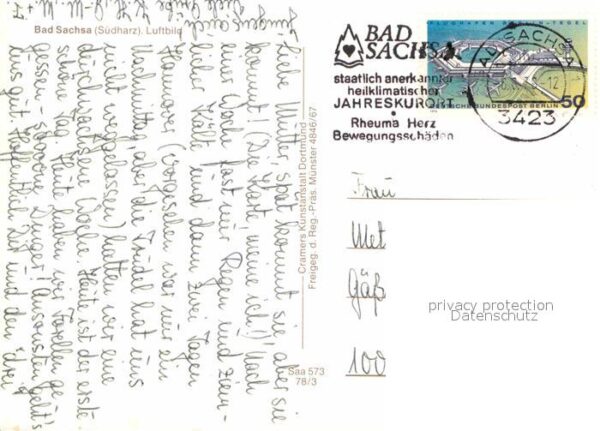 Bad Sachsa (Südharz). Luftbild
Liebe Mutter, spät kommt sie, aber sie
kommt! (Die Karte, meine ich!) Nach
einer Woche fast nur Regen und ziem-
licher Kälte und dann zwei Tagen
Hannover (vorgesehen war nur ein
Nachmittag, aber die Trudel hat uns
nicht weggelassen) hatten wir eine
durchwachsene Woche. Heut ist der erste
schöne Tag. Heute haben wir Forellen ge-
gessen, schööne Dinger! Ansonsten geht's
uns gut. Hoffentlich Dir und den drei
Jungens auch
Viele Grüße
Cramers Kunstanstalt Dortmund
Freigeg. d. Reg.-Präs. Münster 4846/67
Saa 573
78/3
BAD
SACHSA
staatlich anerkannter
heilklimatischer
JAHRESKURORT
Rheuma Herz
Bewegungsschäden
FLUGHAFEN BERLIN-TEGEL
DEUTSCHE BUNDESPOST BERLIN
50
BAD SACHSA
3423
Frau
Met
Gäß
100
privacy protection
Datenschutz